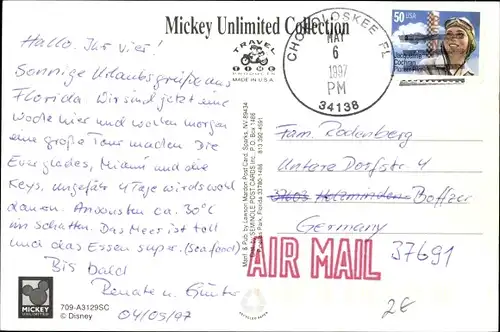 Mickey Unlimited Collection
Hallo Ihr vier!
Sonnige Urlaubsgrüße aus
Florida. Wir sind jetzt eine
Woche hier und wollen morgen
eine große Tour machen. Die
Everglades, Miami und die
Keys. ungefähr 4 Tage wird's wohl
dauern. Ansonsten ca. 30°C
im Schatten. Das Meer ist toll
und das Essen super. (Seafood)
Bis bald
Renate u. Günter
04/05/97
TRAVEL
PRODUCTS
MADE IN U.S.A.
CHOKOLOSKEE FL
MAY
6
1997
PM
34138
50 USA
Jacqueline
Cochran
Pioneer Pilot
Fam. Rodenberg
Untere Dorfstr. 4
37603 Holzminden Boffzen
Germany
37691
AIR MAIL
2€
Manf. & Pub. by Lawson Mardon Post Card, Sparks, NV 89434
by SEMINOLE POSTCARDS Inc., P.O. Box 1486
Pinellas Park, Florida 33780-1486
MICKEY
UNLIMITED
709-A3129SC
© Disney
RECYCLED PAPER